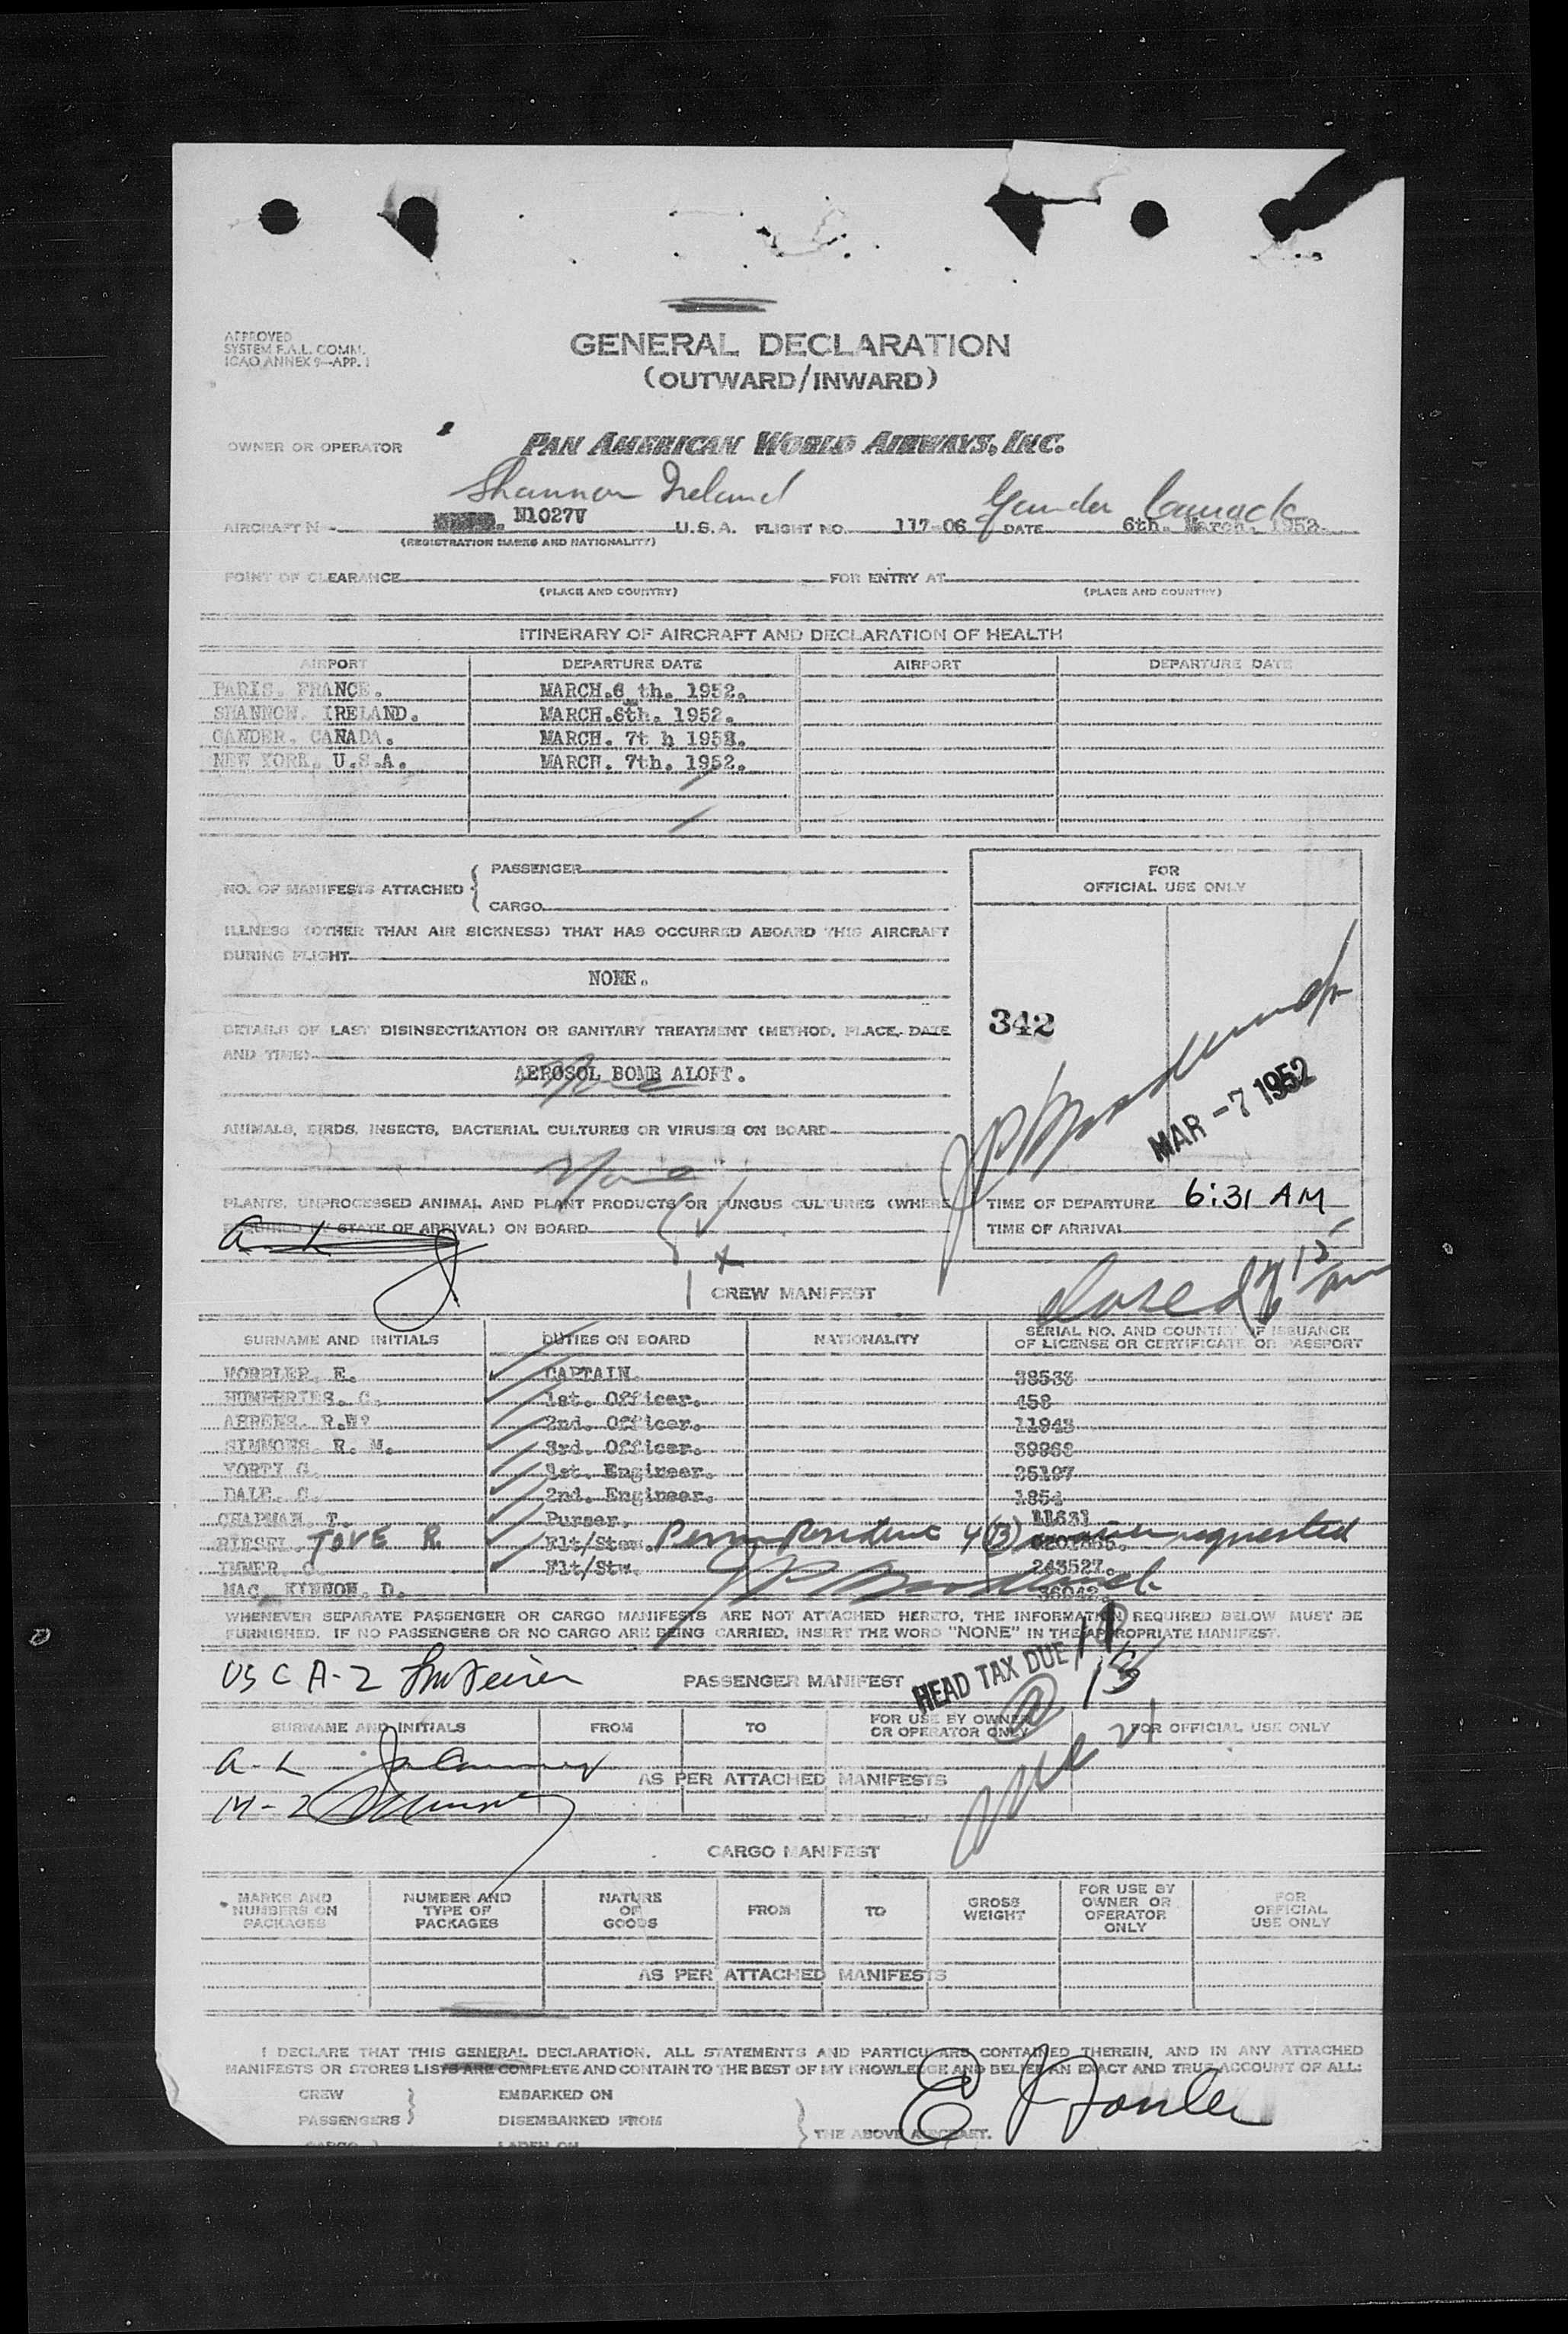 APPROVED
SYSTEM F.A.L. COMM.
ICAO ANNEX 9—APP. 1
GENERAL DECLARATION
(OUTWARD/INWARD)
OWNER OR OPERATOR PAN AMERICAN WORLD AIRWAYS, INC.
Shannon Ireland Gander Canada
AIRCRAFT N - N1027V U.S.A. FLIGHT NO. 117-06 DATE 6th. March. 1952.
(REGISTRATION MARKS AND NATIONALITY)
POINT OF CLEARANCE FOR ENTRY AT
(PLACE AND COUNTRY) (PLACE AND COUNTRY)
ITINERARY OF AIRCRAFT AND DECLARATION OF HEALTH
AIRPORT DEPARTURE DATE AIRPORT DEPARTURE DATE
PARIS. FRANCE. MARCH.6 th. 1952.
SHANNON. IRELAND. MARCH.6th. 1952.
GANDER. CANADA. MARCH. 7t h 1952.
NEW YORK. U.S.A. MARCH. 7th. 1952.
NO. OF MANIFESTS ATTACHED { PASSENGER
CARGO
FOR
OFFICIAL USE ONLY
ILLNESS (OTHER THAN AIR SICKNESS) THAT HAS OCCURRED ABOARD THIS AIRCRAFT
DURING FLIGHT
NONE.
342
DETAILS OF LAST DISINSECTIZATION OR SANITARY TREATMENT (METHOD, PLACE, DATE
AND TIME)
AEROSOL BOMB ALOFT.
None
MAR -7 1952
ANIMALS, BIRDS, INSECTS, BACTERIAL CULTURES OR VIRUSES ON BOARD
None
PLANTS, UNPROCESSED ANIMAL AND PLANT PRODUCTS OR FUNGUS CULTURES (WHERE
REQUIRED BY STATE OF ARRIVAL) ON BOARD
TIME OF DEPARTURE 6:31 AM
TIME OF ARRIVAL
CREW MANIFEST
closed
SURNAME AND INITIALS DUTIES ON BOARD NATIONALITY SERIAL NO. AND COUNTRY OF ISSUANCE
OF LICENSE OR CERTIFICATE OR PASSPORT
E. CAPTAIN. 38533
HUMPHRIES. C. 1st. Officer. 458
AHRENS. R.W? 2nd. Officer. 11943
SIMMONS. R. M. 3rd. Officer. 39968
YORTY G. 1st. Engineer. 35197
DALE. C. 2nd. Engineer. 1854
CHAPMAN. T. Purser. 11631
TOVE R. Flt/Stew. Perm Resident 4(B) requested
IMMER. C. Flt/Stw. 243527.
MAC. KINNON. D. 36042.
WHENEVER SEPARATE PASSENGER OR CARGO MANIFESTS ARE NOT ATTACHED HERETO, THE INFORMATION REQUIRED BELOW MUST BE
FURNISHED. IF NO PASSENGERS OR NO CARGO ARE BEING CARRIED, INSERT THE WORD "NONE" IN THE APPROPRIATE MANIFEST.
USC A-2
PASSENGER MANIFEST
HEAD TAX DUE
SURNAME AND INITIALS FROM TO FOR USE BY OWNER
OR OPERATOR ONLY FOR OFFICIAL USE ONLY
AS PER ATTACHED MANIFESTS
CARGO MANIFEST
MARKS AND
NUMBERS ON
PACKAGES
NUMBER AND
TYPE OF
PACKAGES
NATURE
OF
GOODS
FROM TO
GROSS
WEIGHT
FOR USE BY
OWNER OR
OPERATOR
ONLY
FOR
OFFICIAL
USE ONLY
AS PER ATTACHED MANIFESTS
I DECLARE THAT THIS GENERAL DECLARATION, ALL STATEMENTS AND PARTICULARS CONTAINED THEREIN, AND IN ANY ATTACHED
MANIFESTS OR STORES LISTS ARE COMPLETE AND CONTAIN TO THE BEST OF MY KNOWLEDGE AND BELIEF AN EXACT AND TRUE ACCOUNT OF ALL:
CREW EMBARKED ON
PASSENGERS DISEMBARKED FROM
CARGO LADEN ON
THE ABOVE AIRCRAFT.